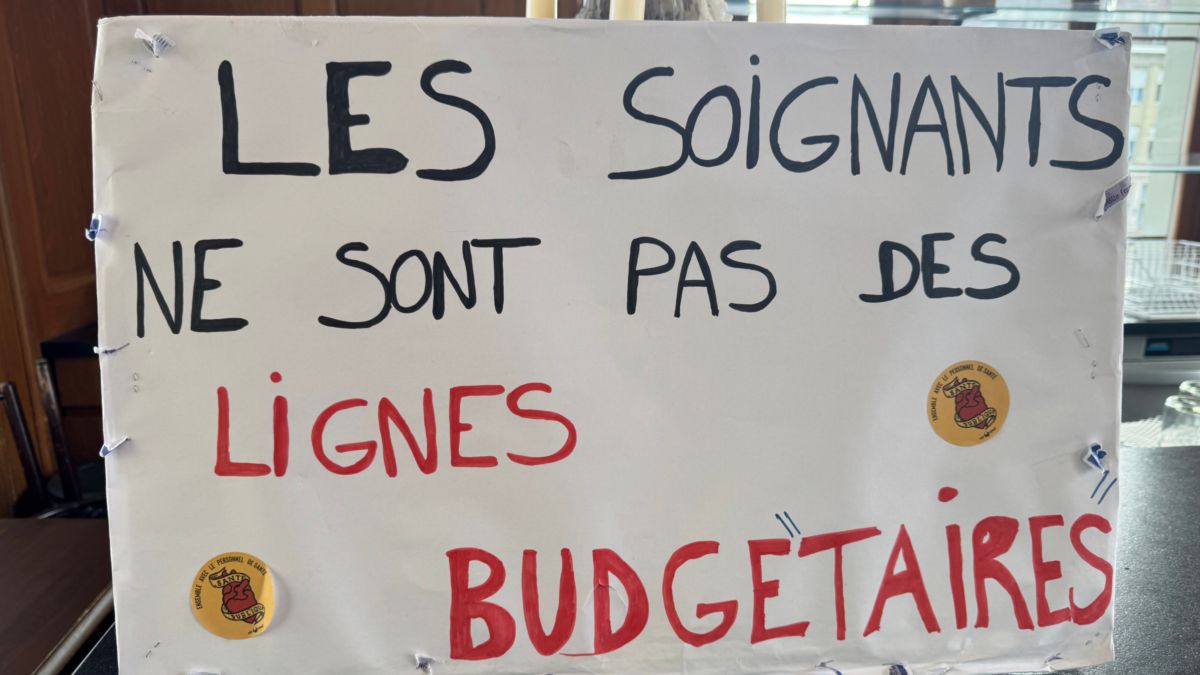 LES SOIGNANTS
NE SONT PAS DES
LIGNES
BUDGETAIRES
ENSEMBLE AVEC LE PERSONNEL DE SANTÉ
SANTÉ
PUBLIQUE
ENSEMBLE AVEC LE PERSONNEL DE SANTÉ
SANTÉ
PUBLIQUE